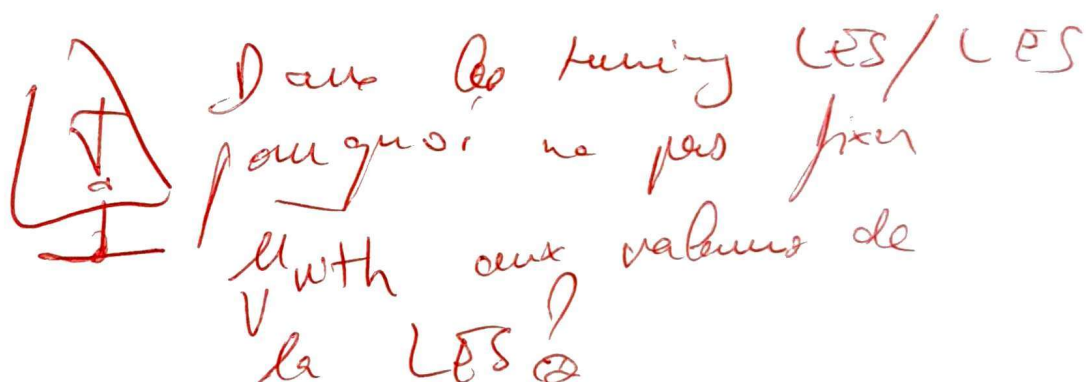 Dans les tuning LES/LES
pourquoi ne pas fixer
wth aux valeurs de
la LES?